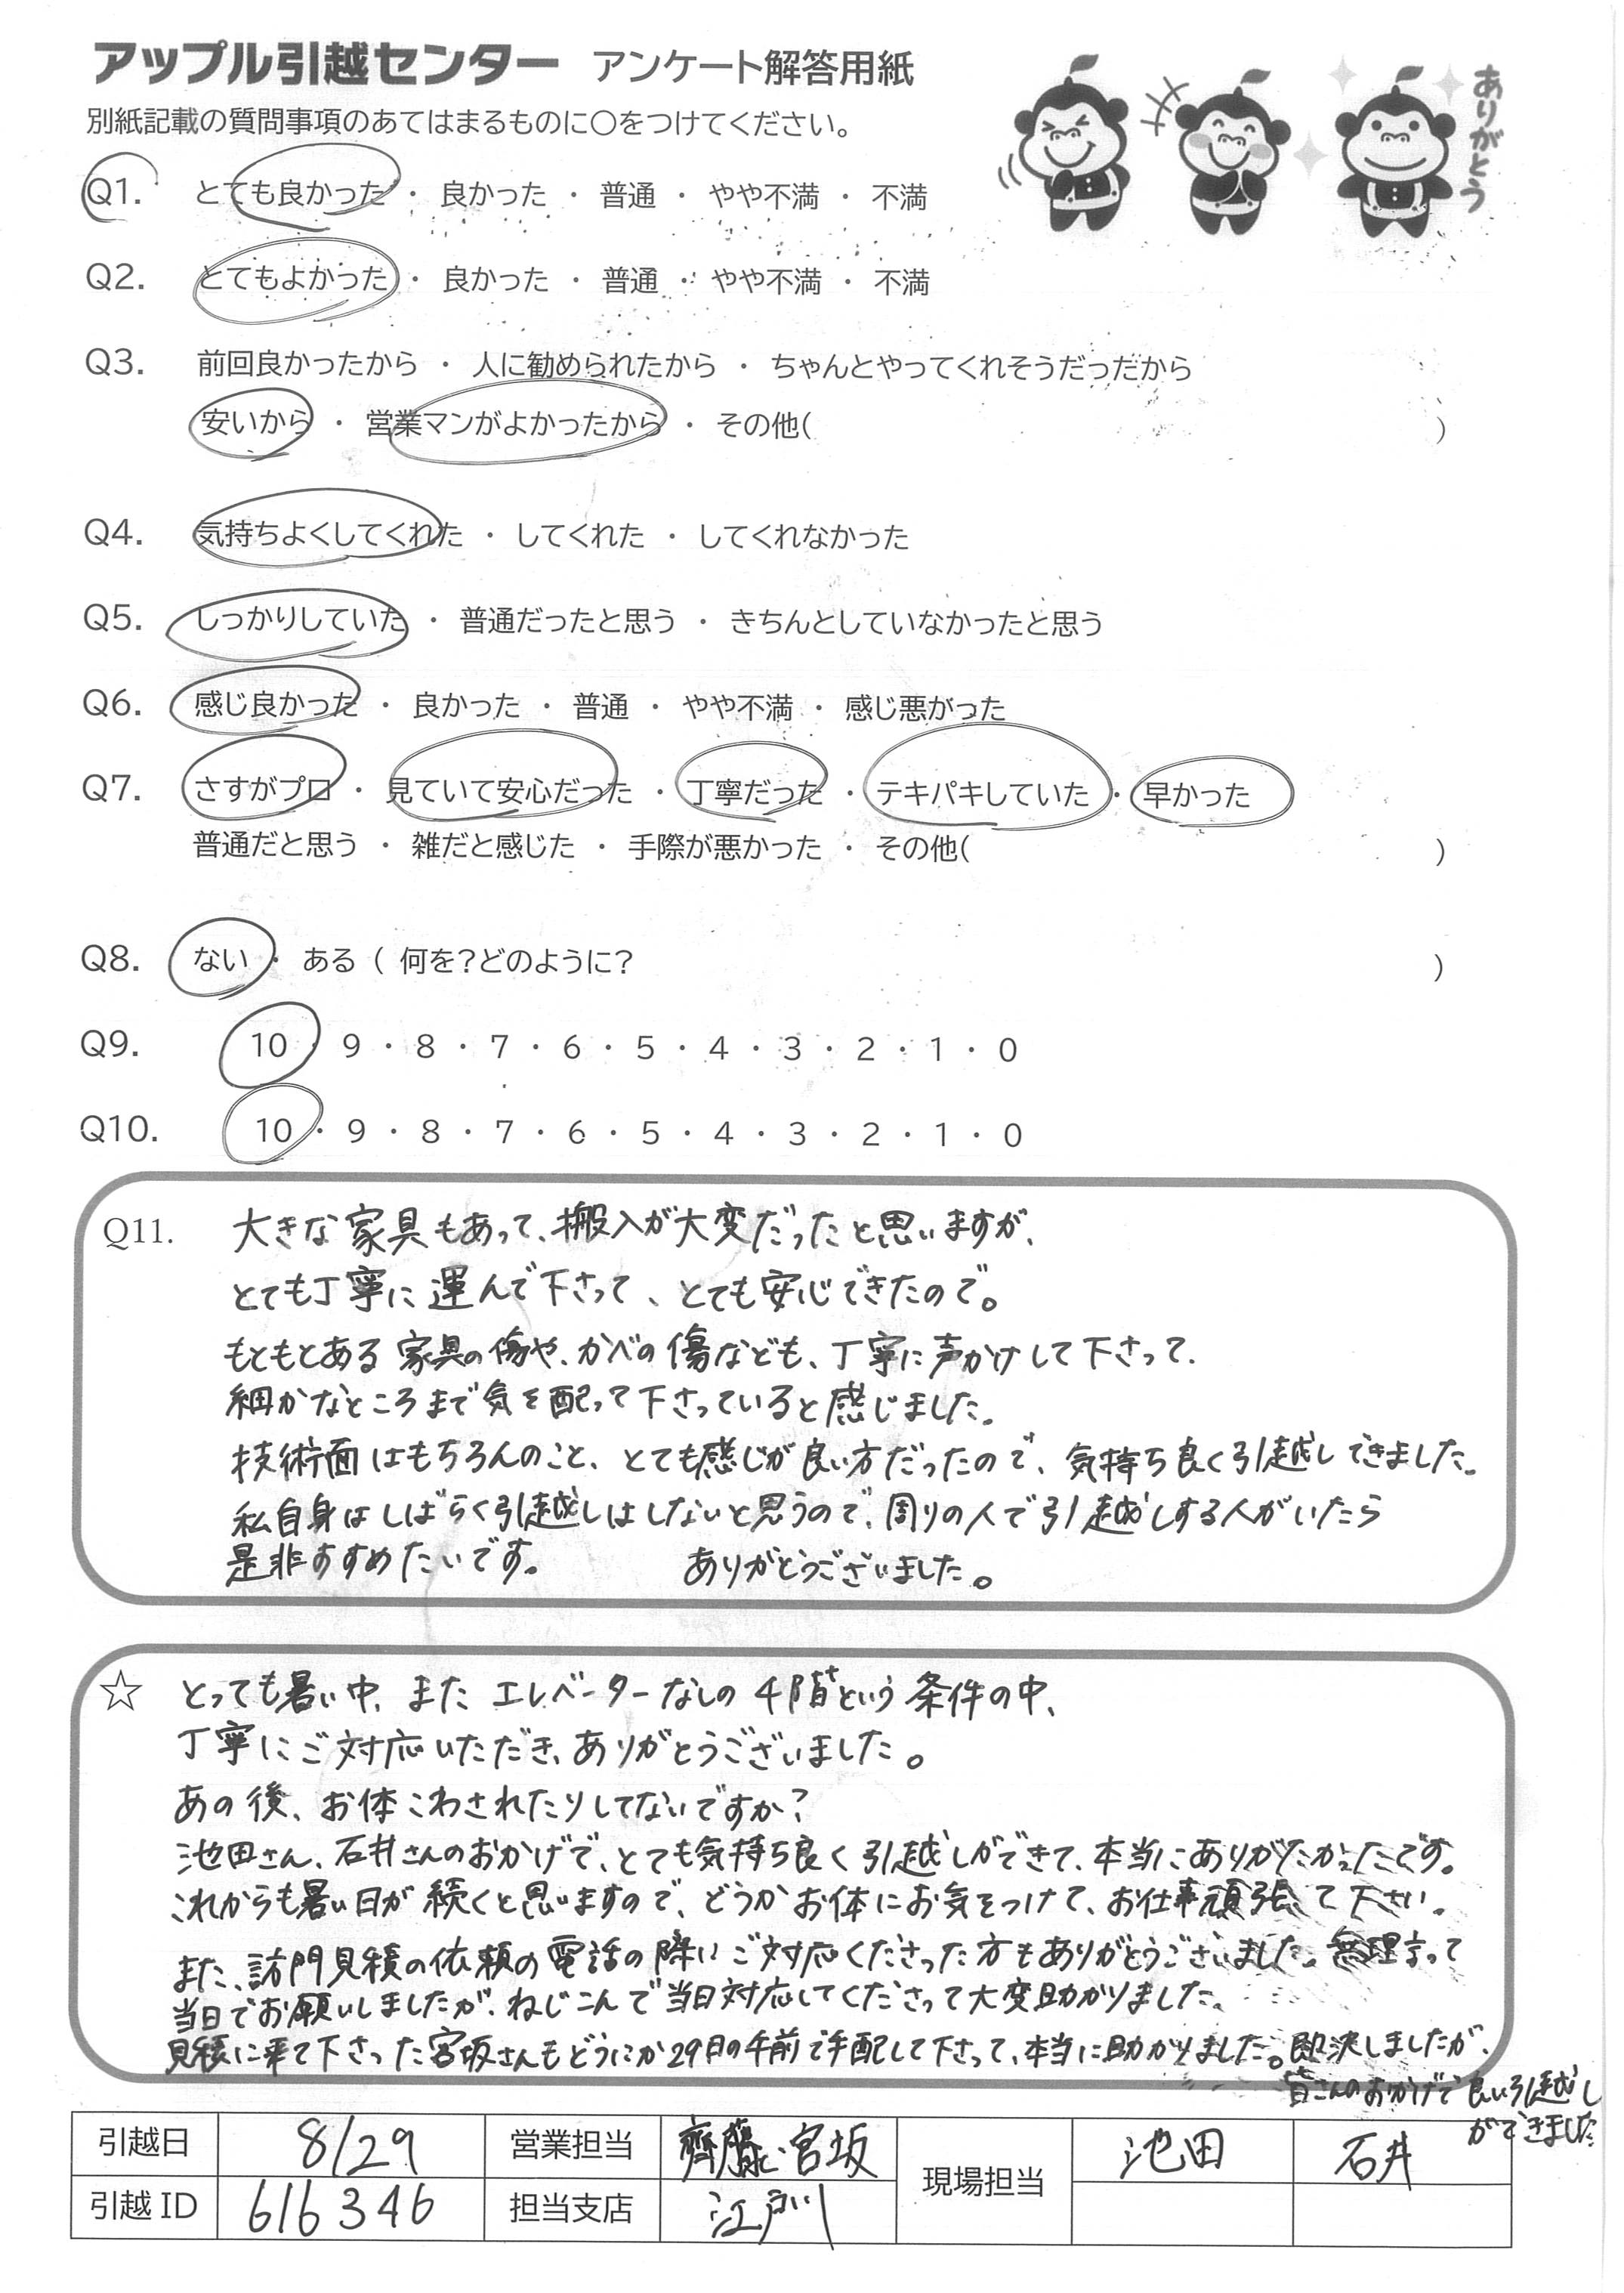 アップル引越センター アンケート解答用紙
ありがとう
別紙記載の質問事項のあてはまるものに○をつけてください。
Q1. とても良かった ・ 良かった ・ 普通 ・ やや不満 ・ 不満
Q2. とてもよかった ・ 良かった ・ 普通 ・ やや不満 ・ 不満
Q3. 前回良かったから ・ 人に勧められたから ・ ちゃんとやってくれそうだっだから
安いから ・ 営業マンがよかったから ・ その他( )
Q4. 気持ちよくしてくれた ・ してくれた ・ してくれなかった
Q5. しっかりしていた ・ 普通だったと思う ・ きちんとしていなかったと思う
Q6. 感じ良かった ・ 良かった ・ 普通 ・ やや不満 ・ 感じ悪がった
Q7. さすがプロ ・ 見ていて安心だった ・ 丁寧だった ・ テキパキしていた ・ 早かった
普通だと思う ・ 雑だと感じた ・ 手際が悪かった ・ その他( )
Q8. ない ・ ある ( 何を?どのように? )
Q9. 10 ・ 9 ・ 8 ・ 7 ・ 6 ・ 5 ・ 4 ・ 3 ・ 2 ・ 1 ・ 0
Q10. 10 ・ 9 ・ 8 ・ 7 ・ 6 ・ 5 ・ 4 ・ 3 ・ 2 ・ 1 ・ 0
Q11. 大きな家具もあって、搬入が大変だったと思いますが、
とても丁寧に運んで下さって、とても安心できたので。
もともとある家具の傷や、かべの傷なども、丁寧に声かけして下さって、
細かなところまで気を配って下さっていると感じました。
技術面はもちろんのこと、とても感じが良い方だったので、気持ち良く引越しできました。
私自身はしばらく引越しはしないと思うので、周りの人で引越しする人がいたら
是非すすめたいです。 ありがとうございました。
☆ とっても暑い中、また エレベーターなしの4階という条件の中、
丁寧にご対応いただき、ありがとうございました。
あの後、お体こわされたりしてないですか?
池田さん、石井さんのおかげで、とても気持ち良く引越しができて、本当にありがたかったです。
これからも暑い日が続くと思いますので、どうかお体にお気をつけて、お仕事頑張って下さい。
また、訪問見積の依頼の電話の際にご対応くださった方もありがとうございました。無理言って
当日でお願いしましたが、ねじこんで当日対応してくださって大変助かりました。
見積に来て下さった宮坂さんもどうにか29日の午前で手配して下さって、本当に助かりました。即決しましたが、
皆さんのおかげで良い引越し
ができました
引越日 8/29 営業担当 齊藤・宮坂 現場担当 池田 石井
引越ID 616346 担当支店 江戸川